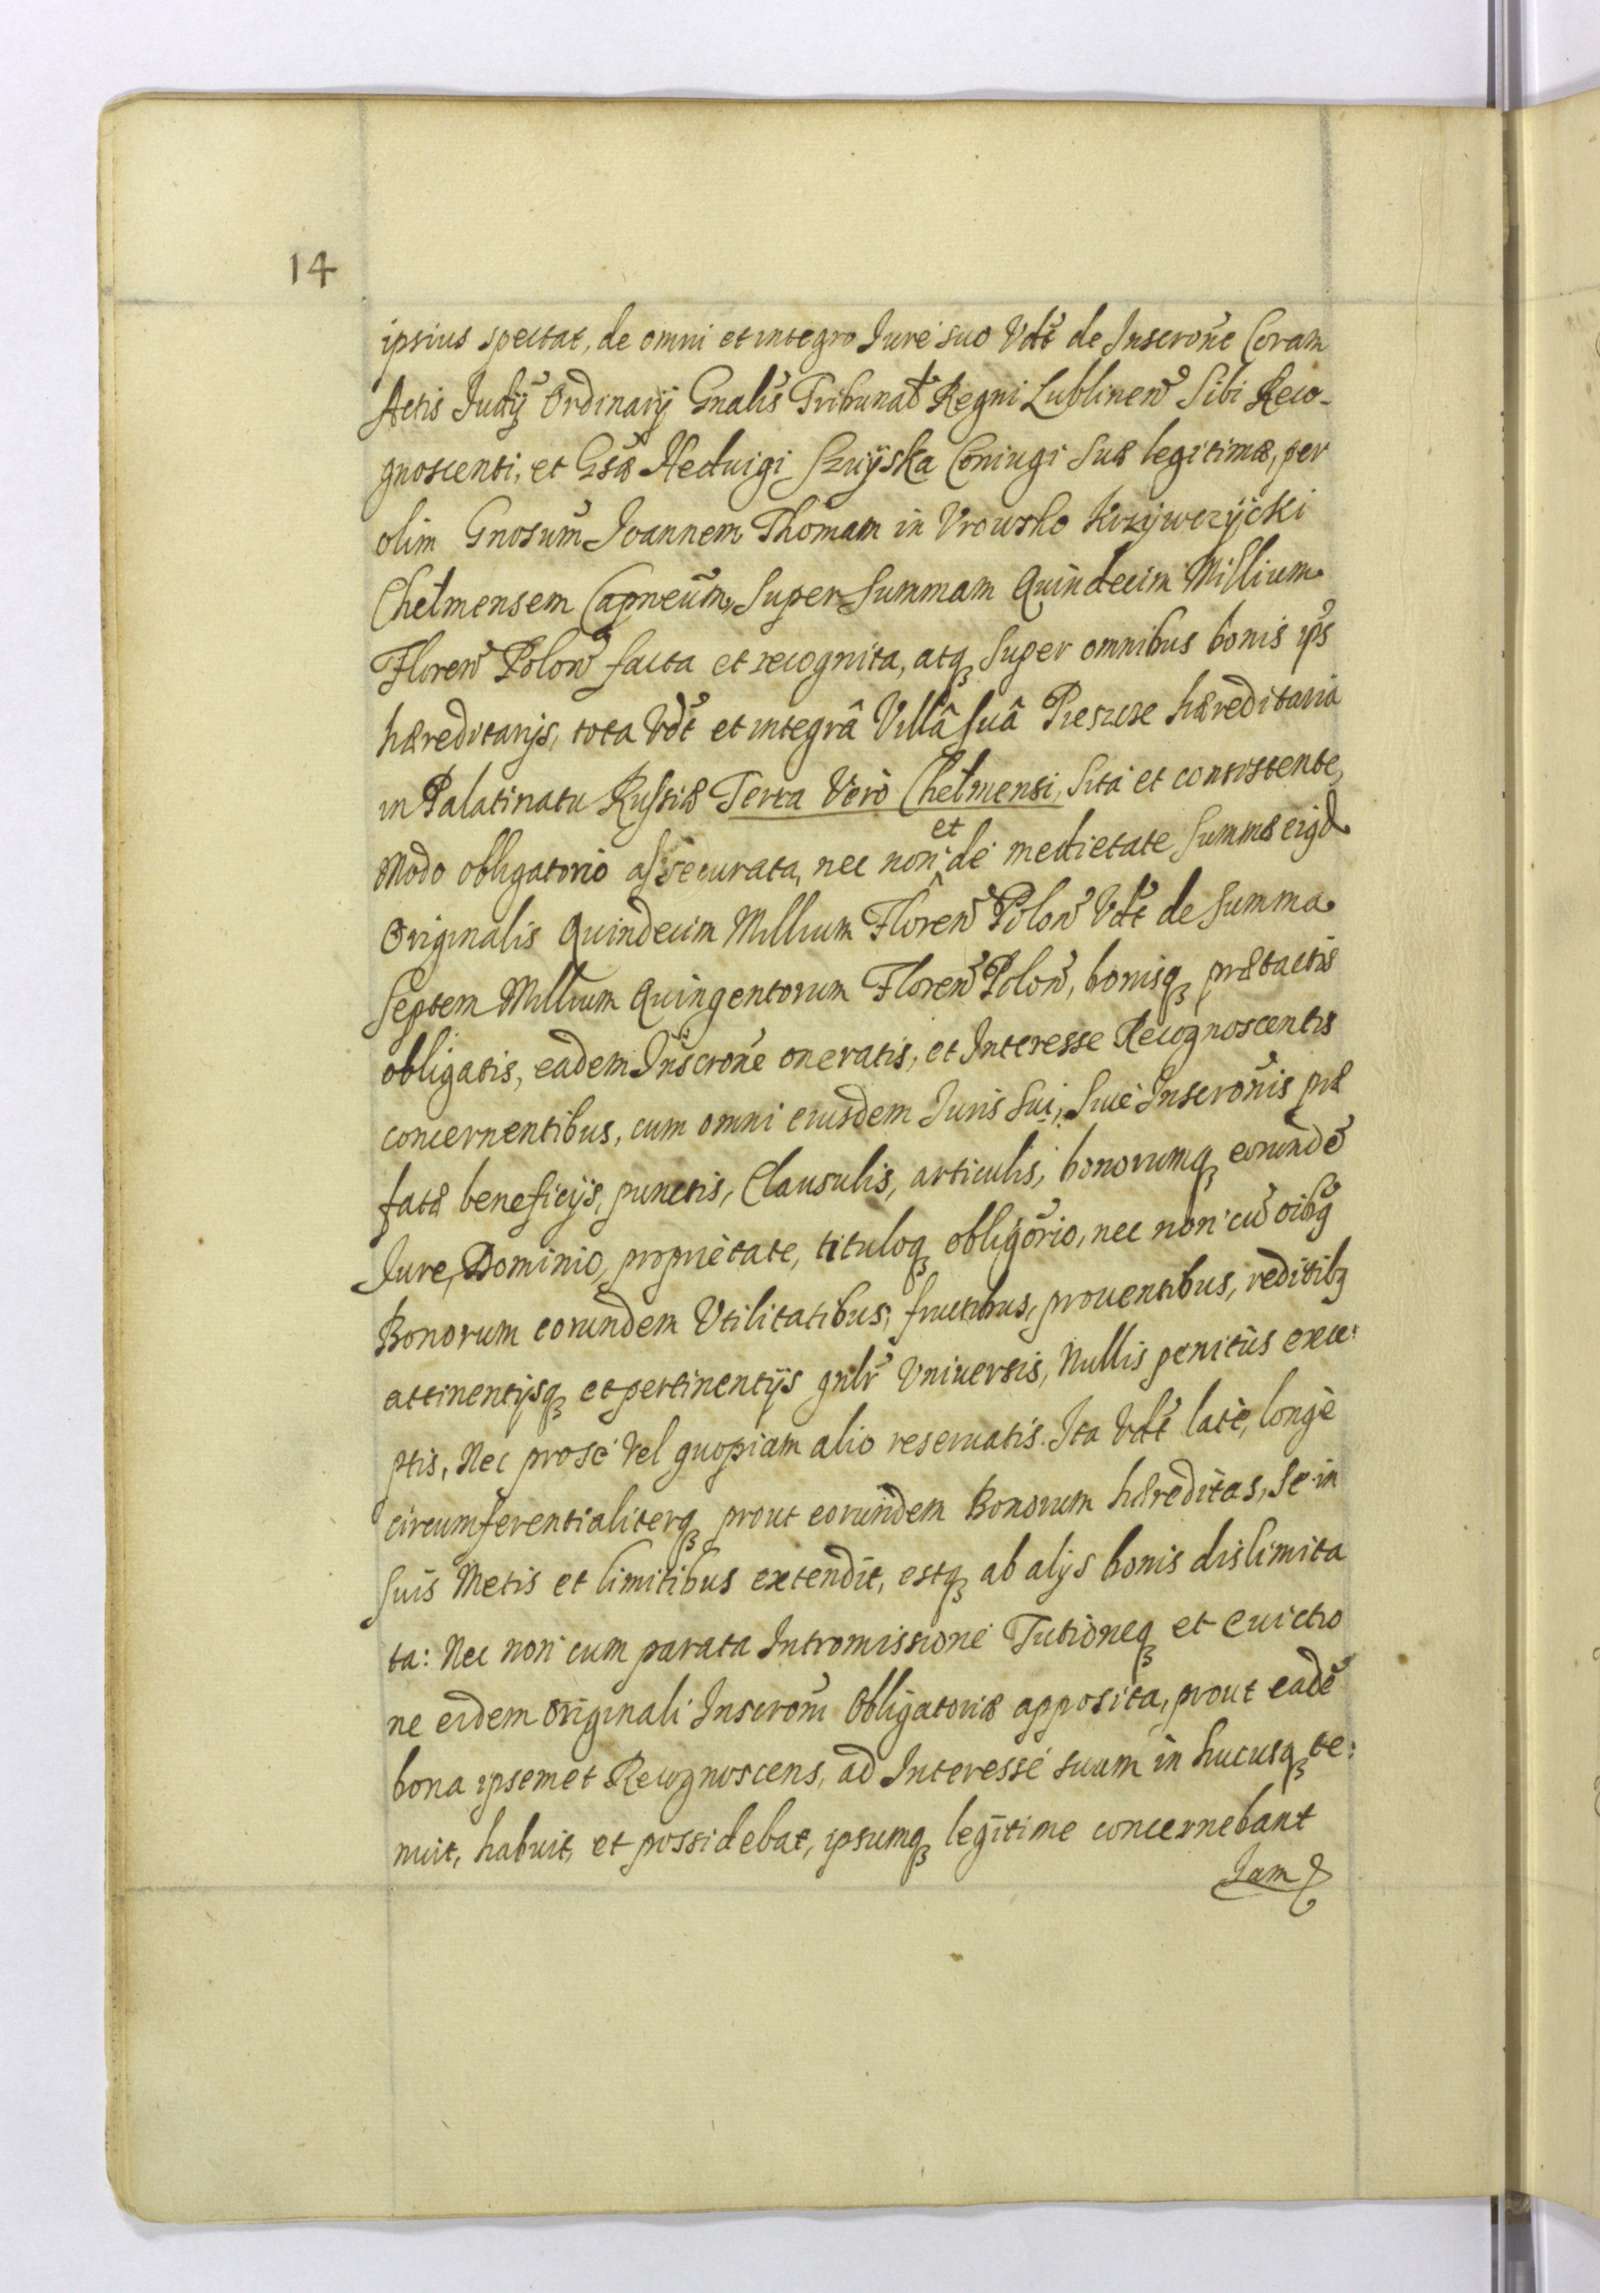 14
ipsius spectat, de omni et integro Jure suo Vdt de Inscrone Coram
Actis Judij Ordinarij Gnalis Tribunal Regni Lublinen Sibi Reco-
gnoscenti, et Gsæ Heduigi Szuÿska Coniugi suæ legitimæ, per
olim Gnosum Joannem Thomam in Vrowsko Krzÿwczÿcki
Chelmensem Capneum, super Summam Quindecim Millium
Floren Polon facta et recognita, atq super omnibus bonis ips
hæreditarijs, tota Vdt et integrâ Villâ suâ Pieszcze hæreditaria
in Palatinatu Russiæ Terra Verò Chelmensi, sita et consistente,
Modo obligatorio assecurata, nec non et de medietate Summæ eigd
Originalis Quindecim Millium Floren Polon Vdt de Summa
Septem Millium Quingentorum Floren Polon, bonisq prætactis
obligatis, eadem Inscrone oneratis, et Interesse Recognoscentis
concernentibus, cum omni eiusdem Juris sui, siue Inscronis præ
fatæ beneficijs, punctis, Clausulis, articulis, bonorumq eorunde
Jure, Dominio, proprietate, tituloq obligorio, nec non cu oibg
Bonorum eorundem Vtilitatibus, fructibus, prouentibus, reditibg
attinentijsq et pertinentijs gnlr Vniuersis, Nullis penitùs exce:
ptis, Nec pro se Vel quopiam alio reseruatis. Ita Vdt latè, longè
circumferentialiterq prout eorundem Bonorum hæreditas, se in
suis Metis et limitibus extendit, estq ab alijs bonis dislimita
ta: Nec non cum parata Intromissione Tutioneq et euictio
ne eidem Originali Inscroni Obligatoriæ apposita, prout eade
bona ipsemet Recognoscens, ad Interesse suum in hucusq te:
nuit, habuit, et possidebat, ipsumq legitime concernebant
Jam